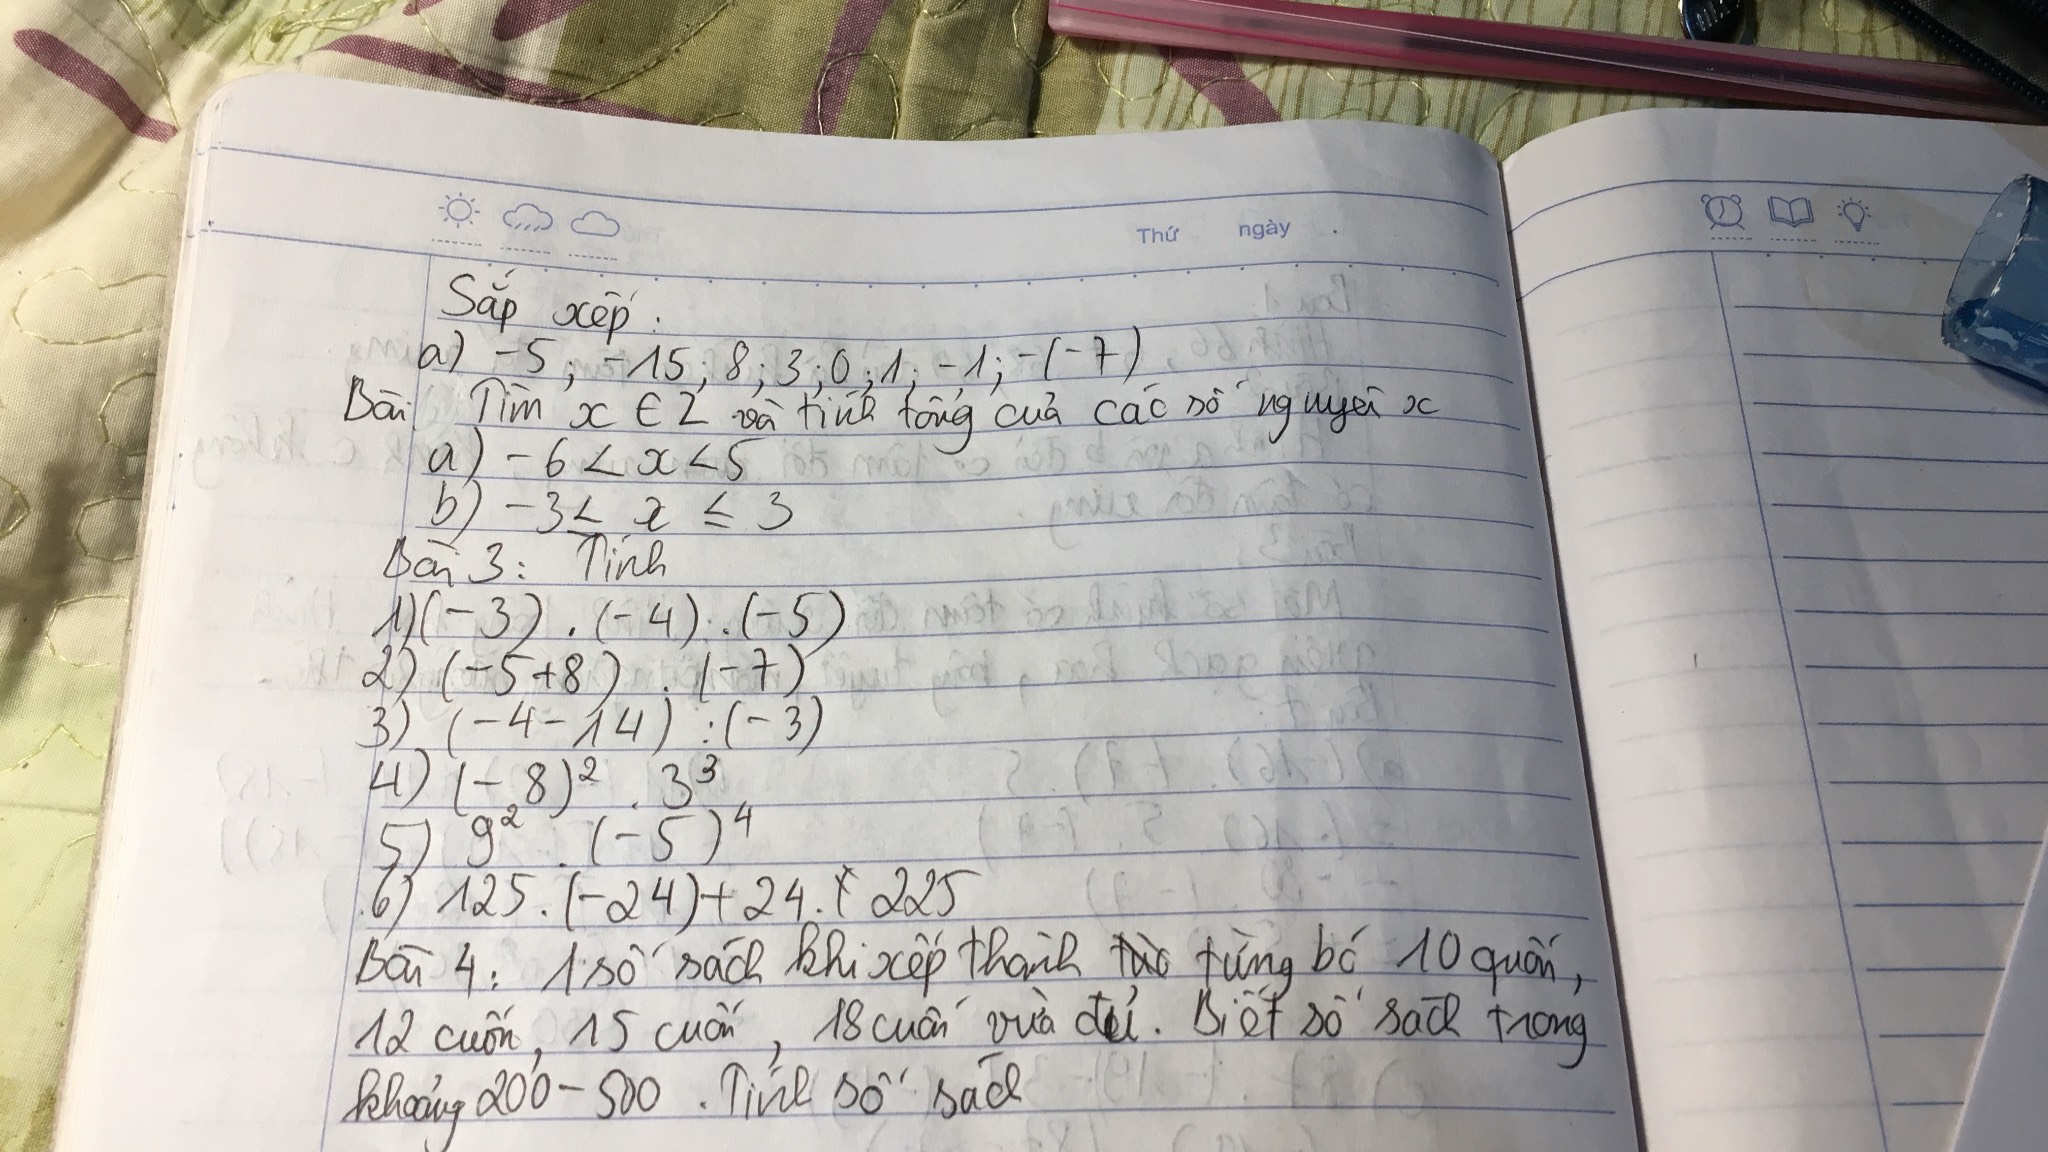 Thứ ngày .
Sắp xếp :
a) -5 ; -15 ; 8 ; 3 ; 0 ; 1 ; -1 ; -(-7)
Bài Tìm x ∈ Z và tính tổng của các số nguyên x
a) -6 < x < 5
b) -3 ≤ x ≤ 3
Bài 3 : Tính
1) (-3) . (-4) . (-5)
2) (-5+8) . (-7)
3) (-4-14) : (-3)
4) (-8)² . 3³
5) 9² . (-5)⁴
6) 125 . (-24) + 24 . 225
Bài 4 : 1 số sách khi xếp thành từng bó 10 quấn,
12 cuốn, 15 cuốn, 18 cuốn vừa đủ. Biết số sách trong
khoảng 200 - 500 . Tính số sách